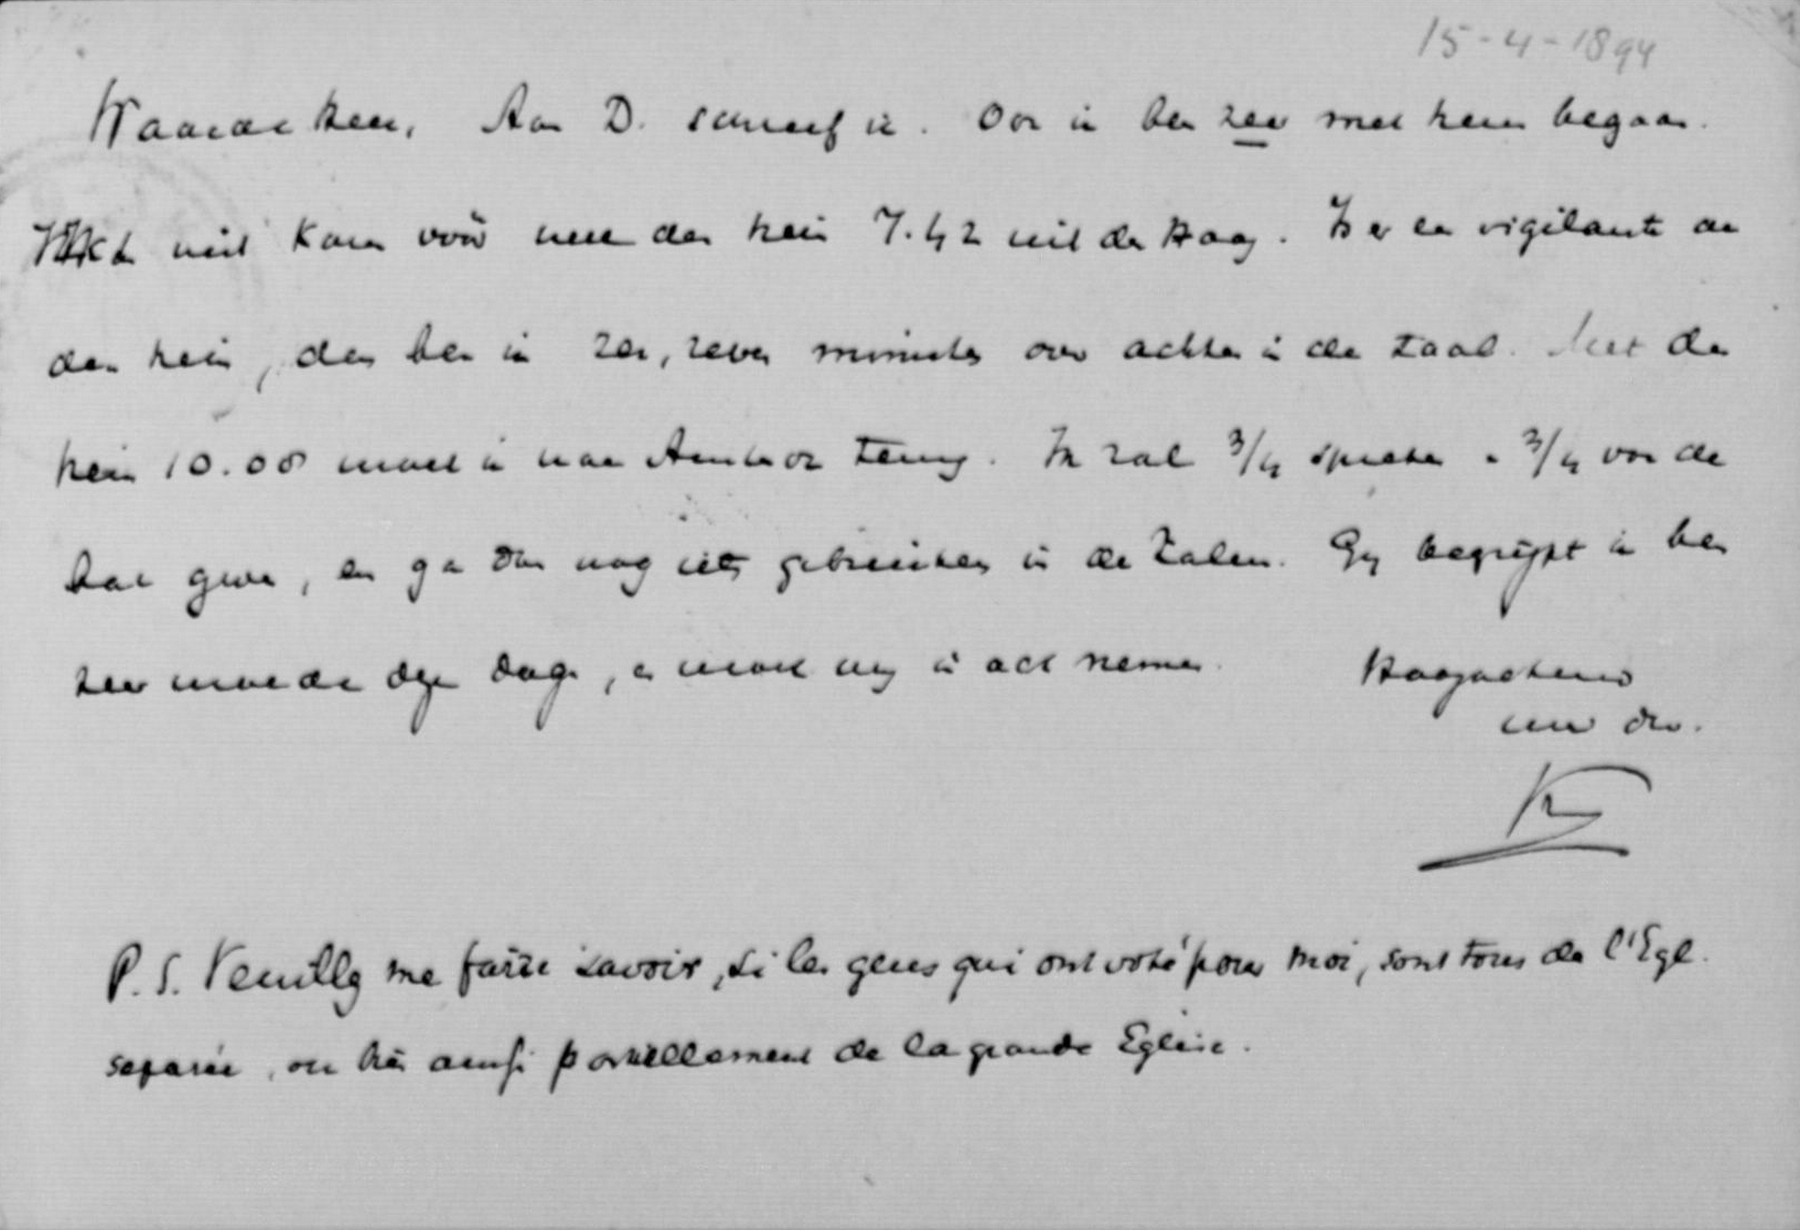 15-4-1894
Waarde heer, Aan D. schreef ik. Ook ik ben zeer met hem begaan.
niet kan vóór met den trein 7.42 uit den Haag. Is er een vigilante aan
den trein, dan ben ik zes, zeven minuten over achten in de zaal. Met den
trein 10.00 moet ik naar terug. Ik zal 3/4 spreken 3/4 voor de
geven, en ga dan nog iets gebruiken in de zalen. Gij begrijpt ik ben
zeer moede deze dagen, en moet mij in acht nemen. Hoogachtend
uw dw.
K
P. S. Veuillez me faire savoir, si les gens qui ont voté pour moi, sont tous de l'Egl.
separée, ou bien aussi partiellement de la grande Eglise.